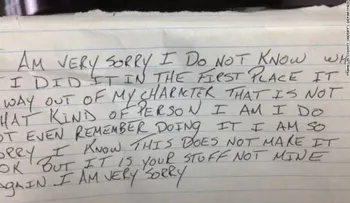 AM VERY SORRY I DO NOT KNOW WH
I DID IT IN THE FIRST PLACE IT
WAY OUT OF MY CHARKTER THAT IS NOT
HAT KIND OF PERSON I AM I DO
OT EVEN REMEMBER DOING IT I AM SO
ORRY I KNOW THIS DOES NOT MAKE IT
OK BUT IT IS YOUR STUFF NOT MINE
AGAIN I AM VERY SORRY